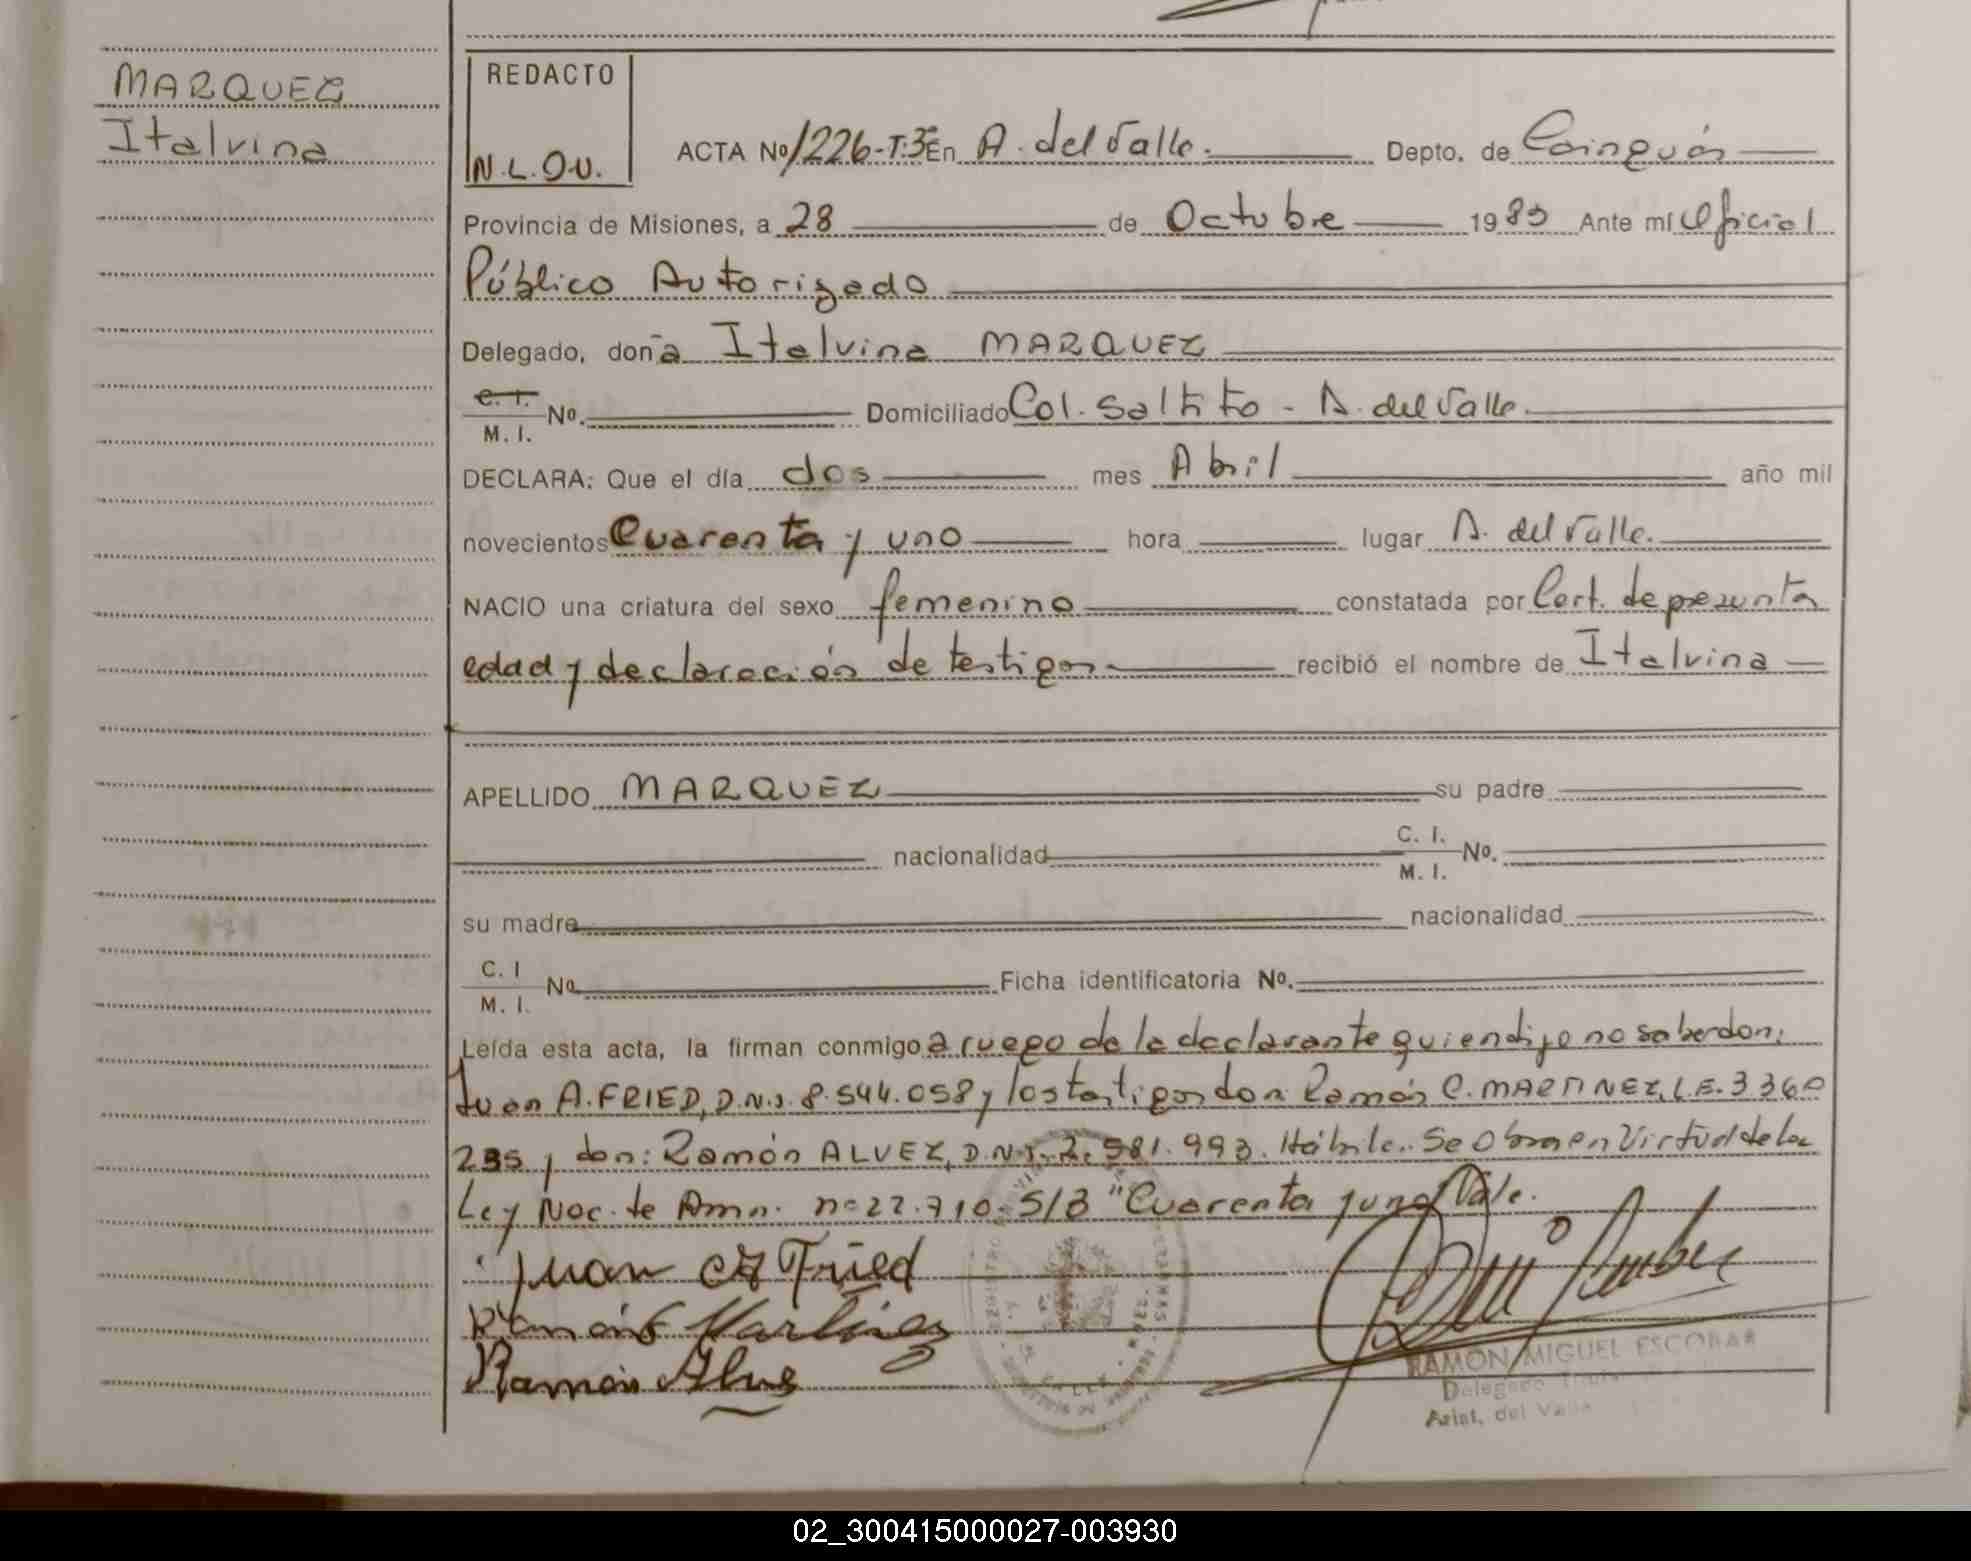 MARQUEZ
Italvina
REDACTO
N.L.O.V.
ACTA Nº 1226-T:3º En A. del Valle. Depto. de Cainguás
Provincia de Misiones, a 28 de Octubre 1985 Ante mí Oficial
Público Autorizado
Delegado, doña Italvina MARQUEZ
C. I.
M. I. Nº. Domiciliado Col. Saltito - A. del Valle.
DECLARA: Que el día dos mes Abril año mil
novecientos Cuarenta y uno hora lugar A. del Valle.
NACIO una criatura del sexo femenino constatada por Cert. de presunta
edad y declaración de testigos. recibió el nombre de Italvina
APELLIDO MARQUEZ su padre
nacionalidad C. I. M. I. Nº.
su madre nacionalidad
C. I M. I. No Ficha identificatoria Nº.
Leída esta acta, la firman conmigo a ruego de la declarante quien dijo no saber don:
Juan A. FRIED, D.N.I. 8.544.058 y los testigos don: Ramón C. MARTINEZ, L.E. 3.360
235 y don: Ramón ALVEZ, D.N.I. 2.581.993. Hábiles. Se Obra en Virtud de la
Ley Nac. de Amn. nº 22.710. S/B "Cuarenta y uno" Vale.
Juan A Fried
Ramón Martinez
Ramón Alvez
RAMON MIGUEL ESCOBAR
Delegado Titular
Arist. del Valle
02_300415000027-003930